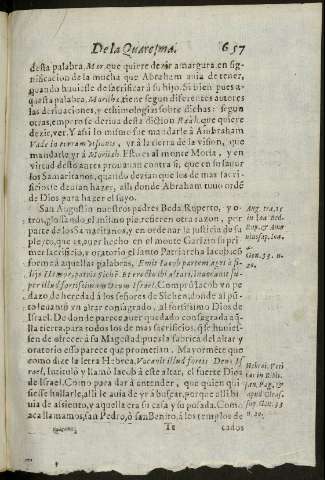 De la Quaresma. 657
desta palabra, Mor, que quiere dezir amargura, en sig-
nificacion de la mucha que Abraham auia de tener,
quando huuiesse de sacrificar á su hijo. Si bien pues a-
questa palabra, Moriha, tiene segun diferentes autores
las deriuaciones, y ethimologias sobre dichas: segun
otras, empero se deriua desta diction Raáh, que quiere
dezir, ver. Y assi lo mismo fue mandarle á Ambraham
Vade in terram visionis, yr á la tierra de la vision, que
mandarle yr á Moriah. Esto es al monte Moria, y en
virtud destos antes prouauan contra si, que en su fauor
los Samaritanos, quando dezian que los de mas sacri-
ficios se deuian hazer, alli donde Abraham tuuo ordē
de Dios para hazer el suyo.
San Augustin nuestros padres Beda, Ruperto, y o-
tros, glossando el mismo pie refieren otra razon, per
parte de los Samaritanos, y en ordenar la justicia de su
pleyto, que es, auer hecho en el monte Garizin su pri-
mer sacrificio, y oratorio el santo Patriarcha Iacob, cō
forme á aquellas palabras, Emit Iacob partem agri á fi-
lijs Hemor, patris Sichē. Et erecto ibi altari, inuocauit su-
per illud fortissimum Deum Israel. Compró Iacob vn pe
dazo de heredad á los señores de Sichen, donde al pū-
to leuantó vn altar consagrado, al fortissimo Dios de
Israel. De donde parece auer quedado consagrada a q̄-
lla tierra, para todos los de mas sacrificios, q̄ se huuies-
sen de ofrecer á su Magestad pues la fabrica del altar y
oratorio esso parece que prometian. Mayormēte que
como dize la letra Hebrea, Vocauit illud fortis Deus Is-
rael, Intituló y llamó Iacob á este altar, el fuerte Dios
de Israel. Como para dar á entender, que quien qui
siesse hallarle, alli le auia de yr á buscar, porque alli ha-
uia de assiento, y aquella era su casa y su posada. Como
aca llamamos, san Pedro, ó san Benito, á los templos de
Te cados
Aug. tra. 15
in Ioa. Bed.
Gen. 33. n.
20.
Hebrei. Veri
tas in Bibl.
Gen. 33
n. 20.